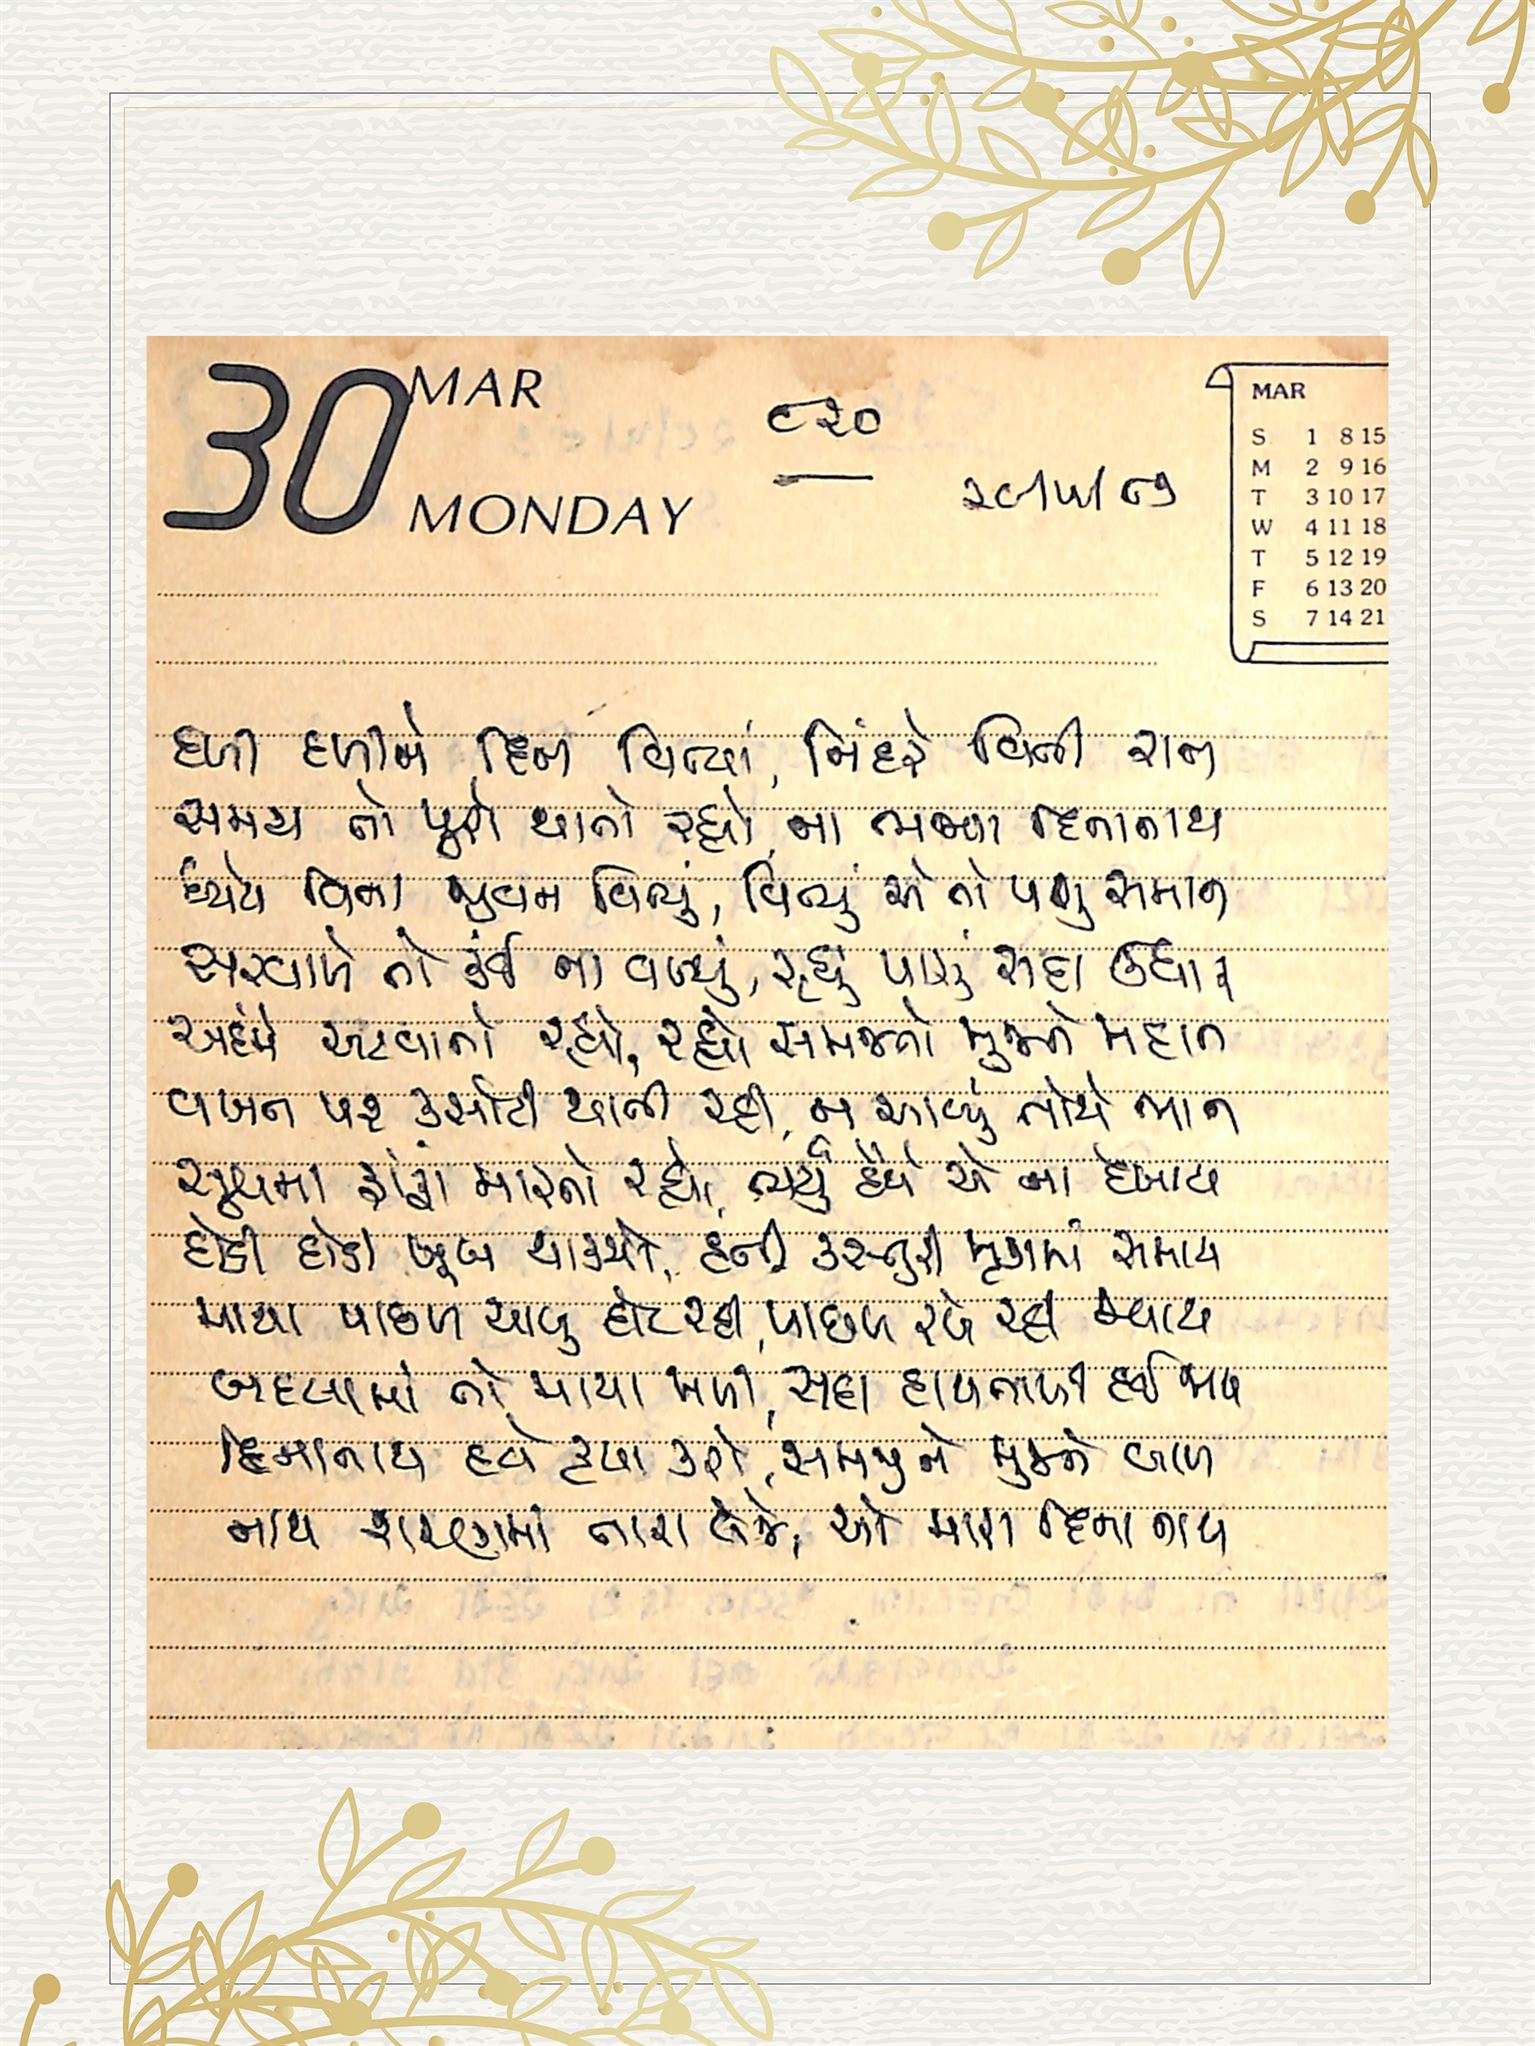 30 MAR
MONDAY
૯૨૦
૨૯/૫/૮૭
MAR
S 1 8 15
M 2 9 16
T 3 10 17
W 4 11 18
T 5 12 19
F 6 13 20
S 7 14 21
દળી દળીને દિન વિત્યાં, નિંદરે વિતી રાત
સમય તો પુરો થાતો રહ્યો, ના ભજ્યા દિનાનાથ
ધ્યેય વિના જીવન વિત્યું, વિત્યું એ તો પશુ સમાન
સરવાળે તો કંઈ ના વળ્યું, રહ્યું પાસું સદા ઉધાર
અહંમે અટવાતો રહ્યો, રહ્યો સમજતો મુજને મહાન
વજન પર કસોટી થાતી રહી, ન આવ્યું તોયે ભાન
શૂન્યમાં ફાંફાં મારતો રહ્યો, ભર્યું હૈયે એ ના દેખાય
દોડી દોડી ખૂબ થાક્યો, હતી કસ્તુરી મૃગમાં સમાય
માયા પાછળ ચાલુ દોટ રહી, પાછળ રખે રહી જવાય
બદલામાં તો માયા મળી, સદા હાથતાળી દઈ જાય
દિનાનાથ હવે કૃપા કરો, સમજીને મુજને બાળ
નાથ શરણમાં તારા લેજે, ઓ મારા દિનાનાથ